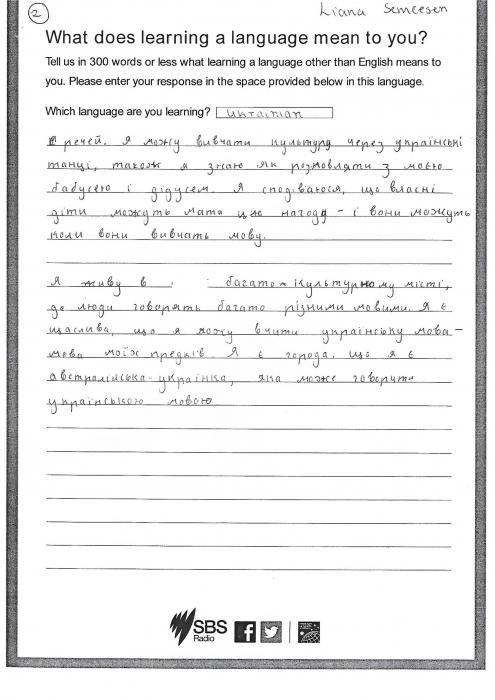 2
Liana Semcesen
What does learning a language mean to you?
Tell us in 300 words or less what learning a language other than English means to
you. Please enter your response in the space provided below in this language.
Which language are you learning? Ukrainian
речей. Я можу вивчати культуру через українські
танці, також я знаю як розмовляти з моєю
бабусею і дідусем. Я сподіваюся, що власні
діти можуть мати цю нагоду - і вони можуть
коли вони вивчать мову.
Я живу в багато-культурному місті,
де люди говорять багато різними мовими. Я є
щаслива, що я можу вчити українську мова -
мова моїх предків. Я є города, що я є
австралійська-українка, яка може говорити
українською мовою
SBS
Radio